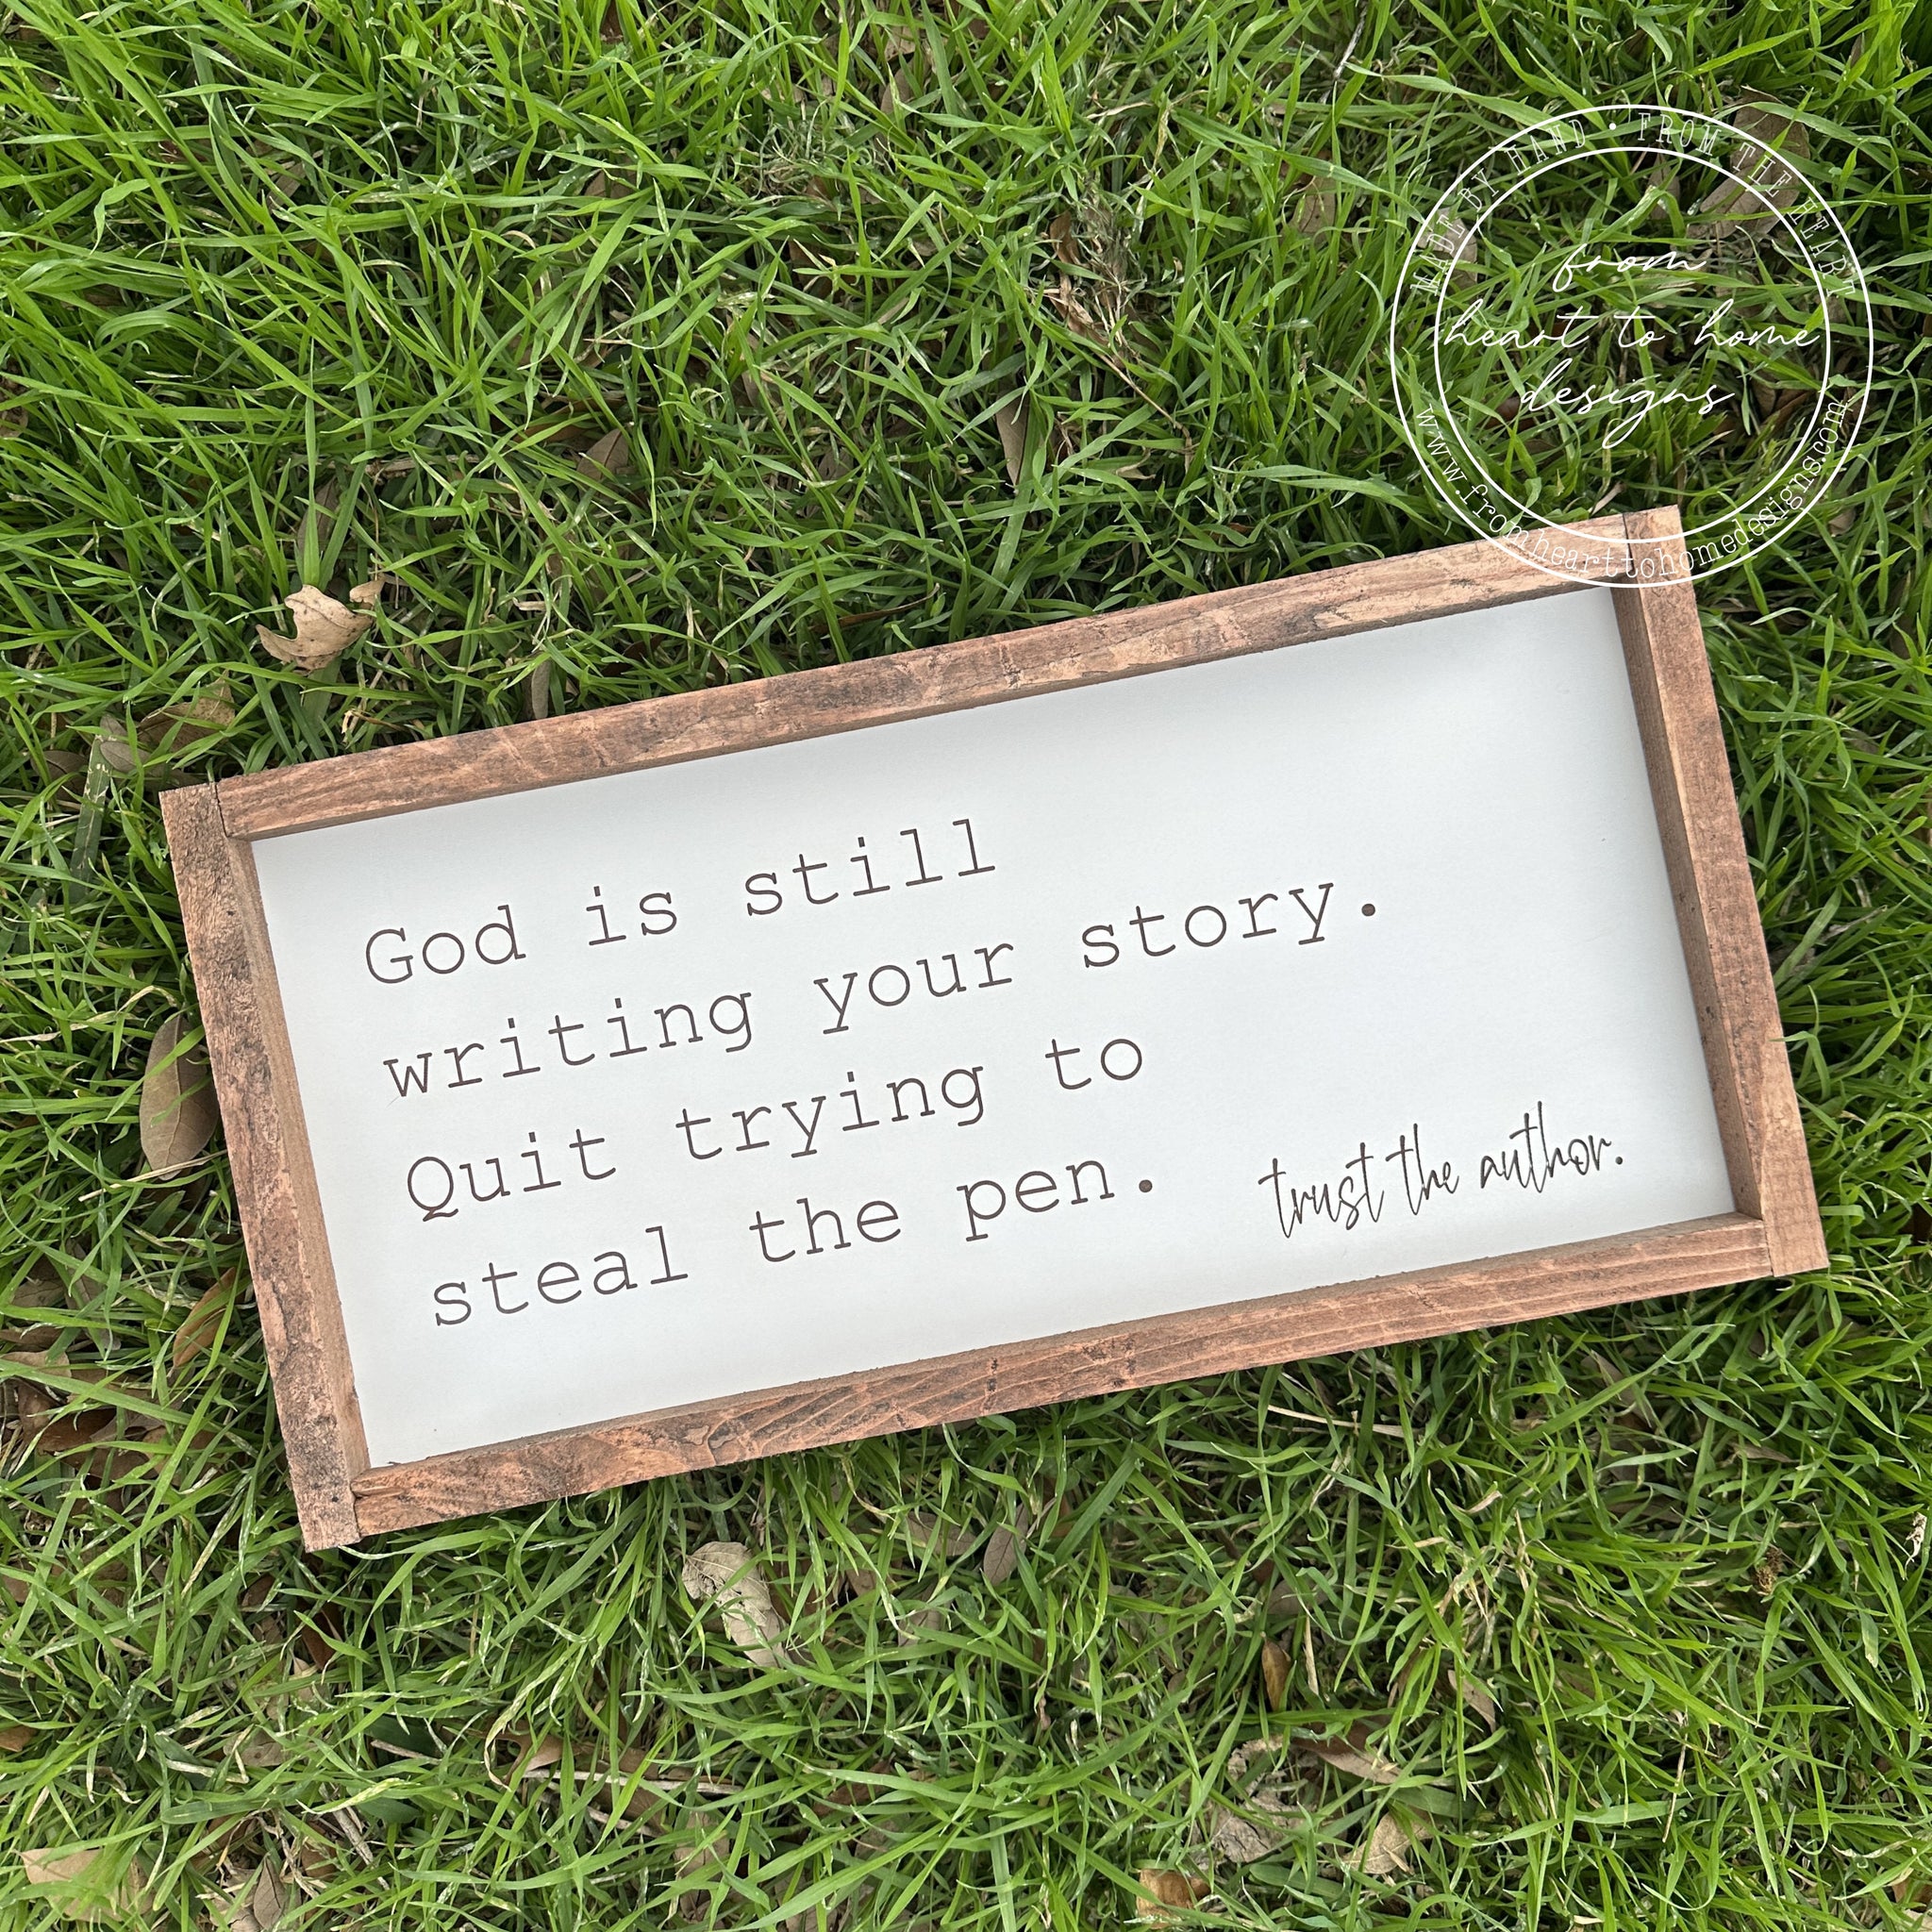 MADE BY HAND • FROM THE HEART
from
heart to home
designs
www.fromhearttohomedesigns.com
God is still
writing your story.
Quit trying to
steal the pen.
trust the author.